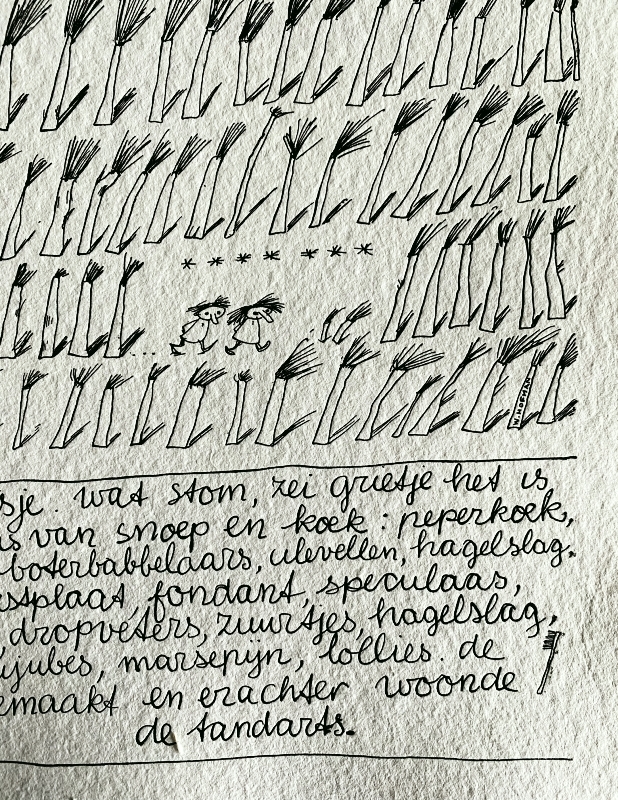 W. HOFMAN
sje. wat stom, zei grietje het is
is van snoep en koek: peperkoek,
boterbabbelaars, ulevellen, hagelslag,
stplaat, fondant, speculaas,
dropveters, zuurtjes, hagelslag,
jujubes, marsepijn, lollies. de
emaakt en erachter woonde
de tandarts.